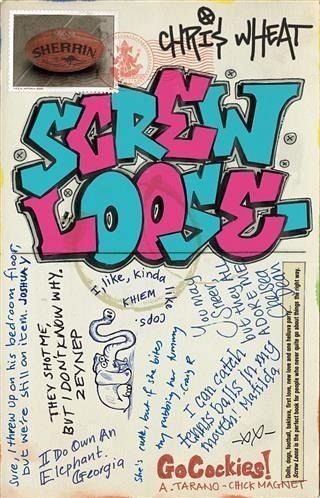 SHERRIN
CHRIS WHEAT
SCREW
LOOSE
Sure, I threw up on his bedroom floor,
but we're still an item. JOSHUA Y
THEY SHOT ME,
BUT I DON'T KNOW WHY.
ZEYNEP
I, like, kinda like
KHIEM cops.
I Do Own An
Elephant.
Georgia
She's cute, even if she bites
my rubbing her tummy
Craig
You may
Speed
but they ME
ADORE
Chelsea
Dean
I can catch
tennis balls in my
mouth. Matilda
XX
Dolls, dogs, football, baklava, first love, new love and one helluva party...
Screw Loose is the perfect book for people who never quite go about things the right way.
Go Cockies!
A. TARANO - CHICK MAGNET